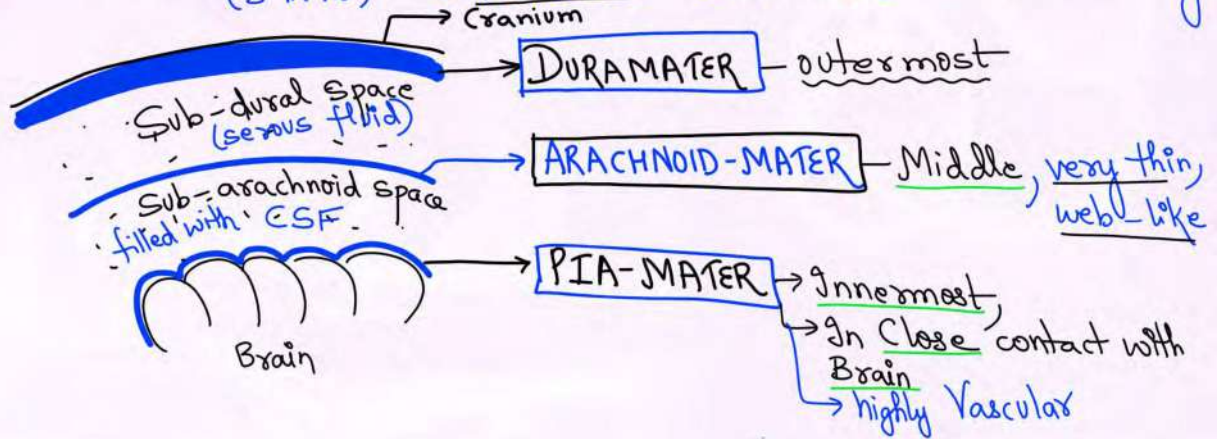 Cranium
DURAMATER - outermost
Sub-dural space
(serous fluid)
ARACHNOID-MATER - Middle, very thin,
web-like
Sub-arachnoid space
filled with CSF
PIA-MATER → Innermost,
→ In Close contact with
Brain
→ highly Vascular
Brain